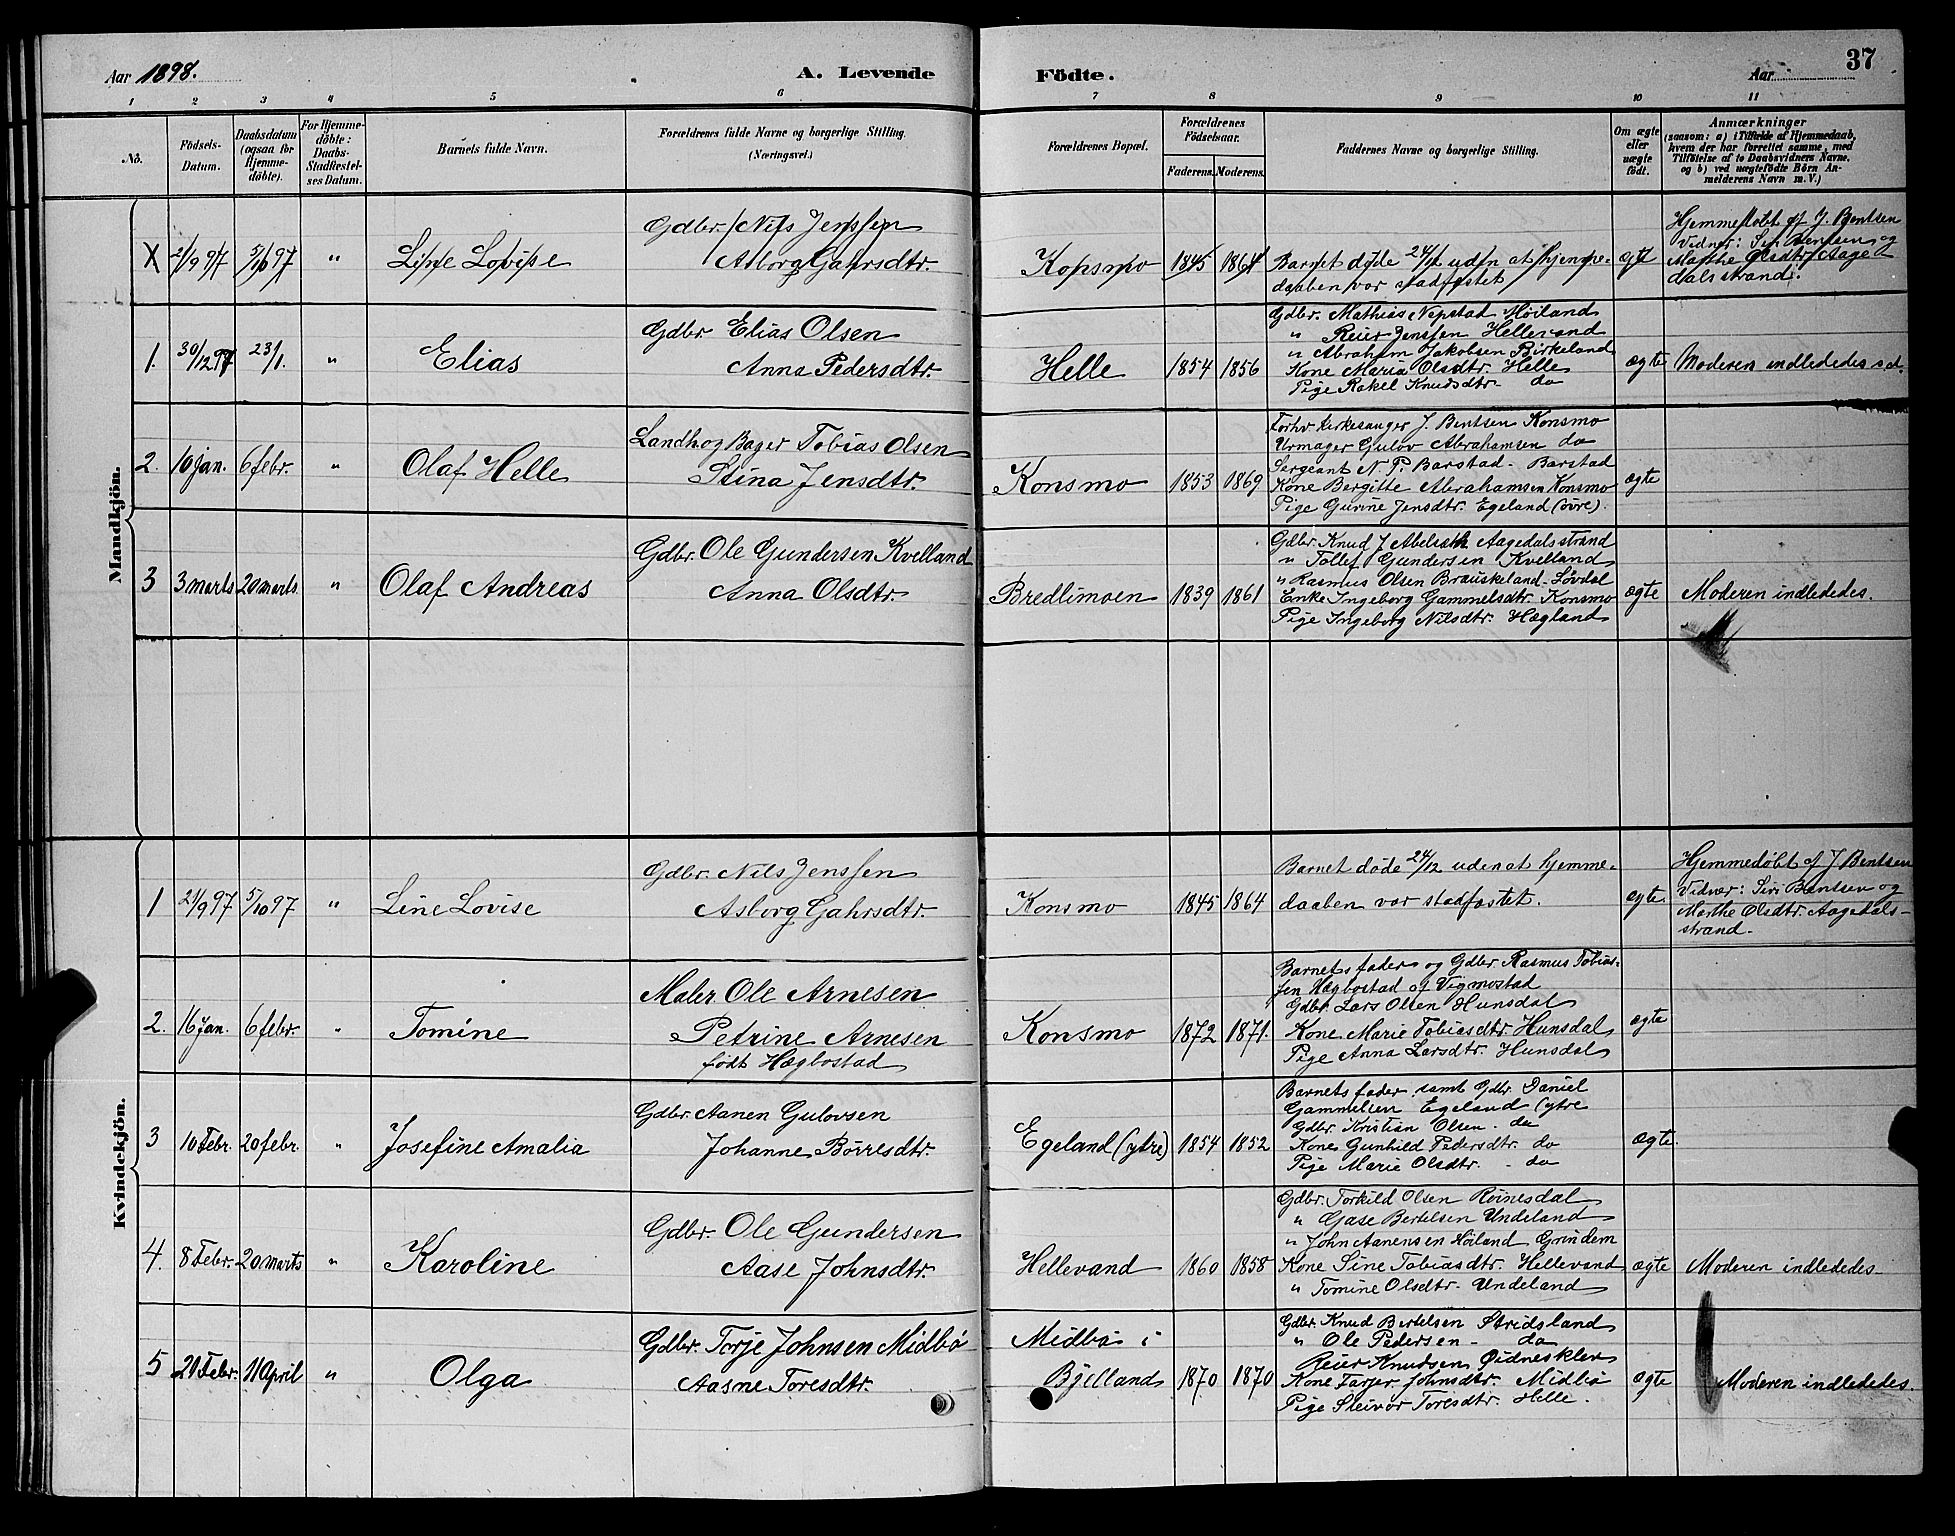 Aar 1898.
A. Levende Födte.
Aar
37
1 2 3 4 5 6 7 8 9 10 11
No.
Födsels-Datum.
Daabsdatum (ogsaa for Hjemme-döbte).
For Hjemme-döbte: Daabs-Stadfæstel-ses Datum.
Barnets fulde Navn.
Forældrenes fulde Navne og borgerlige Stilling. (Næringsvei.)
Forældrenes Bopæl.
Forældrenes Födselsaar.
Faderens. Moderens.
Faddernes Navne og borgerlige Stilling.
Om ægte eller uægte födt.
Anmærkninger
(saasom: a) i Tilfælde af Hjemmedaab,
hvem der har forrettet samme, med
Tilföielse af to Daabsvidners Navne,
og b) ved uægtefödte Börn An-
melderens Navn m. V.)
Mandkjön.
X 21/9 97 5/10 97 " Line Lovise
Gdbr. Nils Jenssen
Asborg Gahrsdtr.
Konsmo 1845 1864
Barnet døde 24/12 uden at hjemme-
daaben var stadfæstet
ægte
Hjemmedøbt af J. Bentsen
Vidner: Siri Bentsen og
Marthe Olsdtr. Aage-
dalsstrand.
1. 30/12 97 23/1. " Elias
Gdbr. Elias Olsen
Anna Pedersdtr.
Helle 1854 1856
Gdbr. Mathias Nepstad Høiland
" Reier Jenssen Hellevand
" Abraham Jakobsen Birkeland
Kone Maria Olsdtr. Helle
Pige Rakel Knudsdtr. do
ægte
Moderen indlededes s.d.
2. 10 Jan. 6 febr. " Olaf Helle
Landh. og Bager Tobias Olsen
Stina Jensdtr.
Konsmo 1853 1869
Forhv kirkesanger J. Bentsen Konsmo
Urmager Gulov Abrahamsen do
Sergeant N. P. Barstad - Barstad
Kone Bergitte Abrahamsen Konsmo
Pige Gurine Jensdtr. Egeland (øvre).
ægte
3 3 marts 20 marts. " Olaf Andreas
Gdbr. Ole Gundersen Kvelland
Anna Olsdtr.
Bredlimoen 1839 1861
Gdbr. Knud J Abelseth Aagedalsstrand
" Tollef Gundersen Kvelland
" Rasmus Olsen Brauskeland - Løvdal
Enke Ingeborg Gammelsdtr. Konsmo
Pige Ingeborg Nilsdtr. Hægland
ægte
Moderen indlededes.
Kvindekjön.
1 21/9 97 5/10 97 " Line Lovise
Gdbr. Nils Jenssen
Asborg Gahrsdtr.
Konsmo 1845 1864
Barnet døde 24/12 uden at hjemme-
daaben var stadfæstet.
ægte.
Hjemmedøbt af J Bentsen
Vidner: Siri Bentsen og
Marthe Olsdtr. Aagedals-
strand.
2. 16 Jan. 6 febr. " Tomine
Maler Ole Arnesen
Petrine Arnesen
født Hægbostad
Konsmo 1872 1871.
Barnets fader og Gdbr. Rasmus Tobias-
sen Hægbostad af Vigmostad
Gdbr. Lars Olsen Hunsdal
Kone Marie Tobiasdtr. Hunsdal
Pige Anna Larsdtr. Hunsdal
ægte
3 10 Febr. 20 febr. " Josefine Amalia
Gdbr. Aanen Gulovsen
Johanne Børresdtr.
Egeland (ytre) 1854 1852
Barnets fader samt Gdbr. Daniel
Gammelsen Egeland (ytre
Gdbr. Kristian Olsen - do
Kone Gunhild Pedersdtr. do
Pige Marie Olsdtr. - do
ægte.
4. 8 Febr. 20 marts " Karoline
Gdbr. Ole Gundersen
Aase Johnsdtr.
Hellevand 1860 1858
Gdbr. Torkild Olsen Røinesdal
" Gase Bertelsen Undeland
" John Aanensen Høiland Grindem
Kone Sine Tobiasdtr. Hellevand
" Tomine Olsdtr. Undeland
ægte
Moderen indlededes
5 21 Febr. 11 April " Olga
Gdbr. Torje Johnsen Midbø
Aasne Toresdtr.
Midbø i
Bjelland 1870 1870
Gdbr. Knud Bertelsen Stridsland
" Ole Pedersen - do
Reier Knudsen Øidneskler
Kone Farjer Johnsdtr. Midbø
Pige Sleivor Toresdtr. Helle.
ægte
Moderen indlededes.